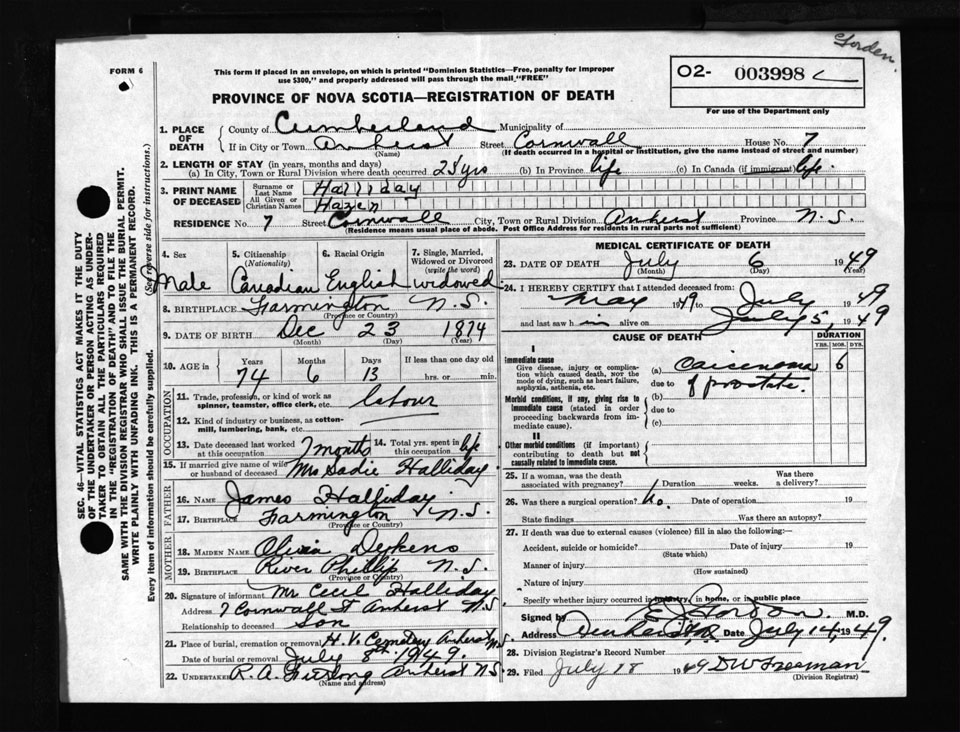 Gorden
FORM 6
This form if placed in an envelope, on which is printed "Dominion Statistics—Free, penalty for improper
use $300," and properly addressed will pass through the mail "FREE"
PROVINCE OF NOVA SCOTIA—REGISTRATION OF DEATH
02- 003998
For use of the Department only
SEC. 46—VITAL STATISTICS ACT MAKES IT THE DUTY
OF THE UNDERTAKER OR PERSON ACTING AS UNDER-
TAKER TO OBTAIN ALL THE PARTICULARS REQUIRED
IN THE "REGISTRATION OF DEATH" AND TO FILE THE
SAME WITH THE DIVISION REGISTRAR WHO SHALL ISSUE THE BURIAL PERMIT.
WRITE PLAINLY WITH UNFADING INK. THIS IS A PERMANENT RECORD.
Every item of information should be carefully supplied. (See reverse side for instructions.)
1. PLACE OF DEATH
County of Cumberland Municipality of
If in City or Town Amherst Street Cornwall House No. 7
(Name) (If death occurred in a hospital or institution, give the name instead of street and number)
2. LENGTH OF STAY (in years, months and days)
(a) In City, Town or Rural Division where death occurred 25 yrs (b) In Province life (c) In Canada (if immigrant) life
3. PRINT NAME OF DECEASED
Surname or Last Name Halliday
All Given or Christian Names Hazen
RESIDENCE No. 7 Street Cornwall City, Town or Rural Division Amherst Province N.S.
(Residence means usual place of abode. Post Office Address for residents in rural parts not sufficient)
4. Sex 5. Citizenship (Nationality) 6. Racial Origin 7. Single, Married, Widowed or Divorced (write the word)
Male Canadian English widowed
8. BIRTHPLACE Farmington N.S.
(Province or Country)
9. DATE OF BIRTH Dec 23 1874
(Month) (Day) (Year)
10. AGE in Years Months Days If less than one day old
74 6 13 hrs. or min.
OCCUPATION
11. Trade, profession, or kind of work as
spinner, teamster, office clerk, etc. labour
12. Kind of industry or business, as cotton-
mill, lumbering, bank, etc.
13. Date deceased last worked at this occupation 7 months 14. Total yrs. spent in this occupation life
15. If married give name of wife or husband of deceased Mrs Sadie Halliday
FATHER
16. Name James Halliday
17. Birthplace Farmington N.S.
(Province or Country)
MOTHER
18. Maiden Name Olivia
19. Birthplace River Phillip N.S.
(Province or Country)
20. Signature of informant Mr Cecil Halliday
Address 7 Cornwall St Amherst N.S
Relationship to deceased Son
21. Place of burial, cremation or removal H.V. Cemetery Amherst N.S.
Date of burial or removal July 8th 1949.
22. Undertaker R. A. Furlong Amherst N.S
(Name and address)
MEDICAL CERTIFICATE OF DEATH
23. DATE OF DEATH July 6 1949
(Month) (Day) (Year)
24. I HEREBY CERTIFY that I attended deceased from:
May 1949 to July 1949
and last saw h im alive on July 5, 1949
CAUSE OF DEATH DURATION
YRS. MOS. DYS.
I
Immediate cause
Give disease, injury or complica-
tion which caused death, NOT the
mode of dying, such as heart failure,
asphyxia, asthenia, etc.
(a) Carcenoma 6
due to of prostate.
Morbid conditions, if any, giving rise to
immediate cause (stated in order
proceeding backwards from im-
mediate cause).
(b)
due to
(c)
II
Other morbid conditions (if important)
contributing to death but not
causally related to immediate cause.
25. If a woman, was the death associated with pregnancy? Duration weeks. Was there a delivery?
26. Was there a surgical operation? No. Date of operation 19
State findings Was there an autopsy?
27. If death was due to external causes (violence) fill in also the following:—
Accident, suicide or homicide? Date of injury 19
(State which)
Manner of injury
(How sustained)
Nature of injury
Specify whether injury occurred in industry, in home, or in public place
Signed by M.D.
Address Date July 14, 1949.
28. Division Registrar's Record Number
29. Filed July 18 1949 D W Freeman
(Division Registrar)